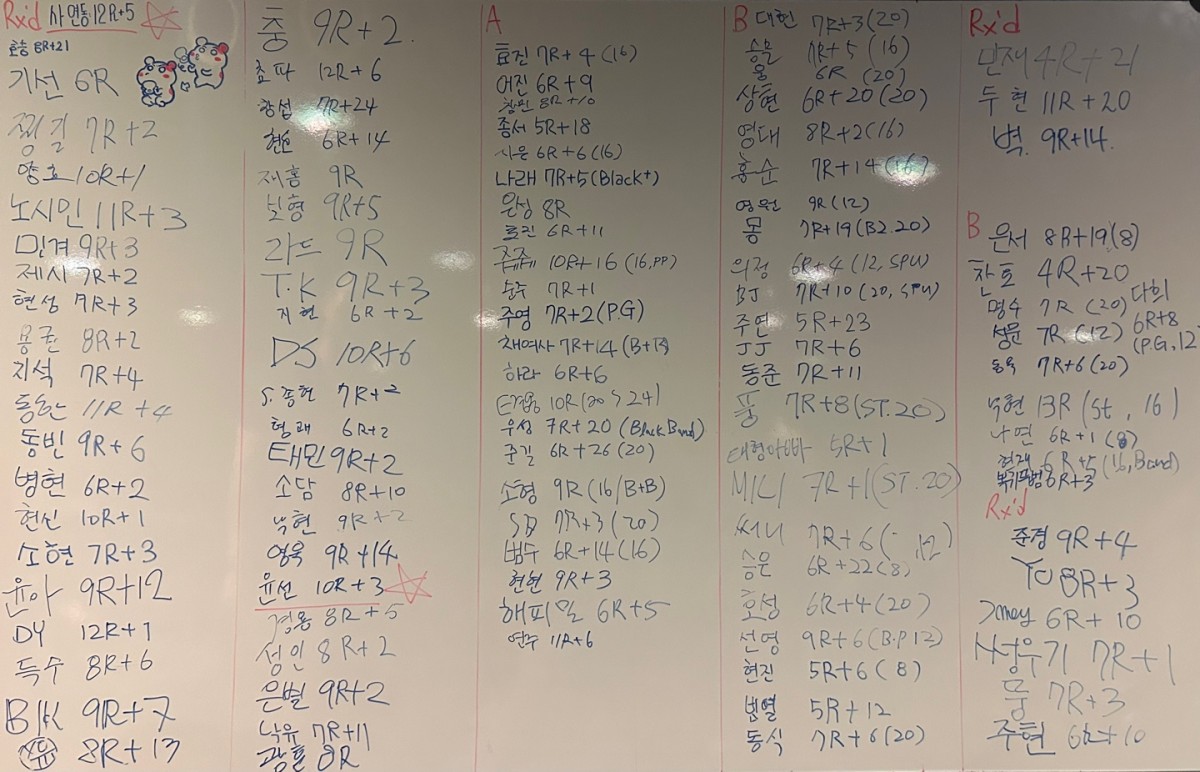 Rx'd 사연동 12R+5
효승 8R+21
기선 6R
찡길 7R+2
양호 10R+1
노시인 11R+3
민겨 9R+3
제시 7R+2
현성 9R+3
용준 8R+2
지석 7R+4
동훈 11R+4
동빈 9R+6
병현 6R+2
현신 10R+1
소현 7R+3
윤아 9R+12
DY 12R+1
득수 8R+6
BK 9R+7
유 8R+13
충 9R+2.
초파 12R+6
창섭 7R+24
현 6R+14
재홍 9R
보형 9R+5
라드 9R
T.K 9R+3
지현 6R+2
DS 10R+6
S.종현 7R+2
형래 6R+2
태민 9R+2
소담 8R+10
낙현 9R+2
영욱 9R+14
윤선 10R+3
경용 8R+5
성인 8R+2
은별 9R+2
낙유 7R+11
광훈 8R
A
효진 7R+4 (16)
어진 6R+9
창민 8R+10
종서 5R+18
시온 6R+6 (16)
나래 7R+5 (Black+)
은성 8R
효진 6R+11
쥬쥬 10R+16 (16, PP)
승수 7R+1
주영 7R+2 (P.G)
채여사 7R+14 (B+B)
하라 6R+6
10R (20 > 24)
우성 7R+20 (Black Band)
준길 6R+26 (20)
소형 9R (16/B+B)
SB 7R+3 (20)
범수 6R+14 (16)
현현 9R+3
해피밀 6R+5
연주 11R+6
B 대현 7R+3 (20)
승윤 7R+5 (16)
웅 6R (20)
상현 6R+20 (20)
영대 8R+2 (16)
홍순 7R+14 (16)
영원 9R (12)
몽 7R+19 (B2.20)
의정 6R+4 (12, SPU)
BJ 7R+10 (20, SPU)
주연 5R+23
JJ 7R+6
동준 7R+11
풍 7R+8 (ST.20)
태형아빠 5R+1
MILI 7R+1 (ST.20)
써니 7R+6 ( , 12)
승은 6R+22 (8)
호성 6R+4 (20)
선영 9R+6 (B.P 12)
현진 5R+6 (8)
변열 5R+12
동식 7R+6 (20)
Rx'd
민재 4R+21
두현 11R+20
벽. 9R+14.
B
은서 8R+19 (8)
찬호 4R+20
명수 7R (20)
성문 7R (12)
다희
6R+8
(P.G, 12
동욱 7R+6 (20)
낙현 13R (St, 16)
나연 6R+1 (8)
현재 6R+5 (16, Band)
복귀 8R+3
Rx'd
준경 9R+4
YO 8R+3
Jmey 6R+10
사랑우기 7R+1
둥 7R+3
주현 6R+10